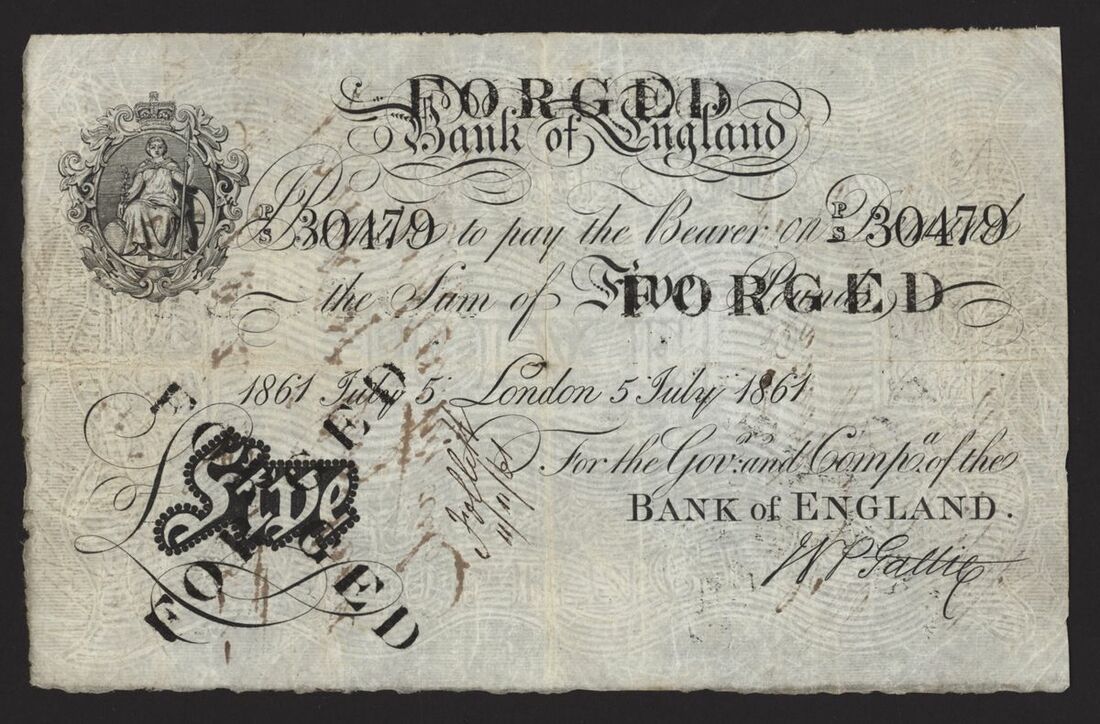 FORGED
Bank of England
P/S 30479 to pay the Bearer on P/S 30479
the Sum of Five Pounds
FORGED
1861 July 5 London 5 July 1861
For the Govr. and Compa. of the
BANK of ENGLAND.
W P Gattie
Five
FORGED
FORGED
11/11/61